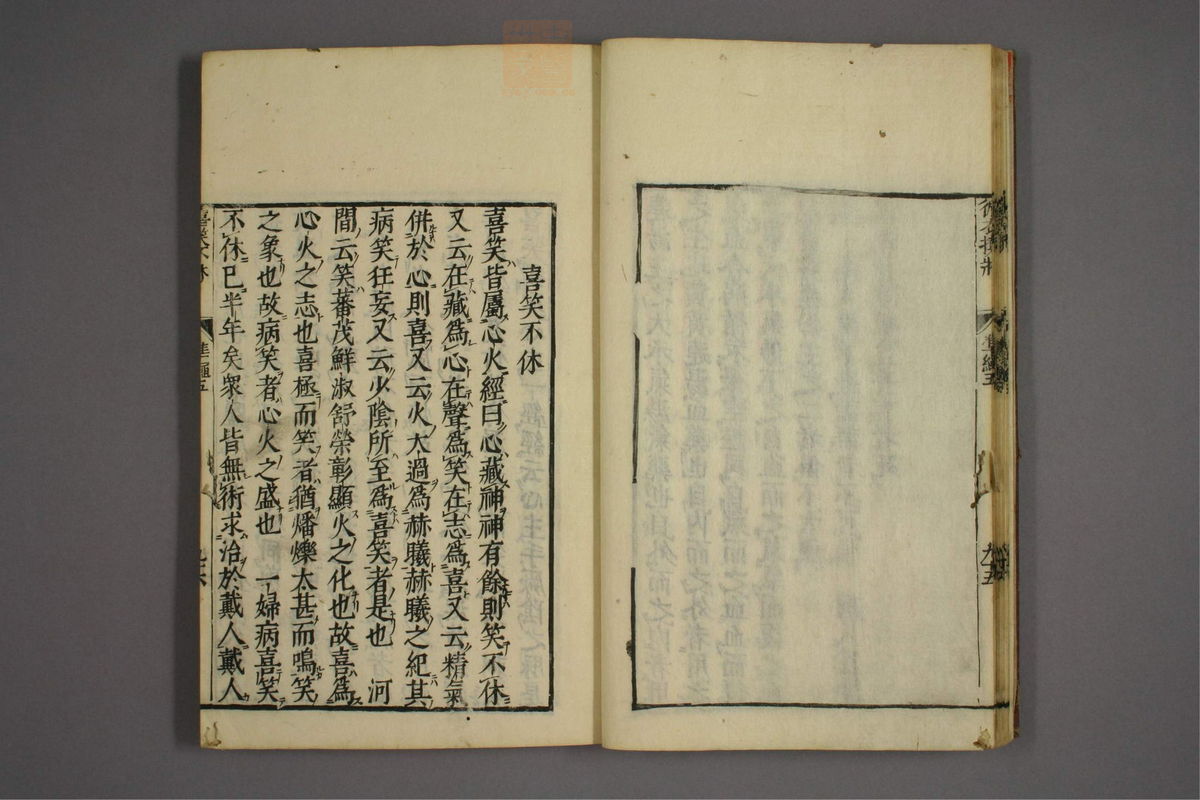 喜笑不休
喜笑皆屬心火經曰心藏神神有餘則笑不休
又云在藏為心在聲為笑在志為喜又云精氣
併於心則喜又云火大過為赫曦赫曦之紀其
病笑狂妄又云少陰所至為喜笑者是也　河
間云笑蕃茂鮮淑舒榮彰顯火之化也故喜為
心火之志也喜極而笑者猶燔爍太甚而鳴笑
之象也故病笑者心火之盛也　一婦病喜笑
不休巳半年矣衆人皆無術求治於戴人戴人